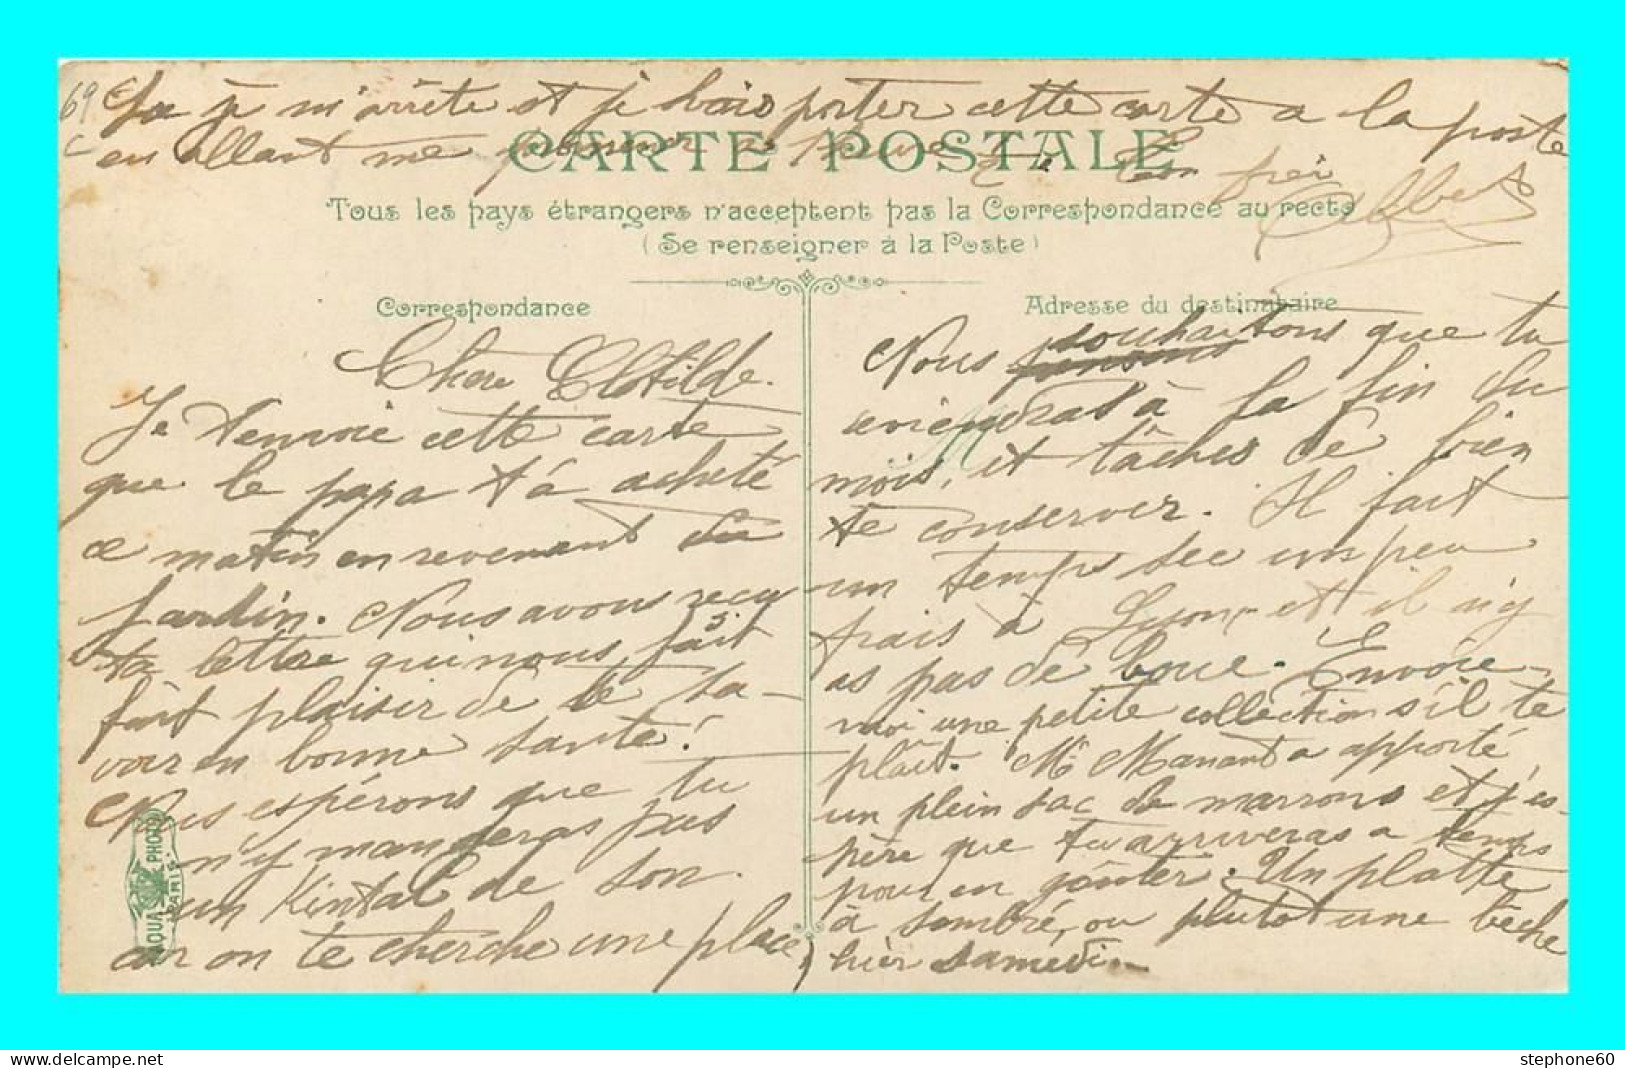 69
c
je m'arrête et je vais porter cette carte a la poste
en allant me promener
Ton frère
Albert
CARTE POSTALE
Tous les pays étrangers n'acceptent pas la Correspondance au recto
(Se renseigner à la Poste)
Correspondance
Chère Clotilde.
Je t'envoie cette carte
que le papa t'a acheté
ce matin en revenant du
jardin. Nous avons reçu
ta lettre qui nous fait
fait plaisir de te sa-
voir en bonne santé!
Nous espérons que tu
n'y mangeras pas
un Kintal de son
car on te cherche une place,
AQUA PHOTO
PARIS
Adresse du destinataire
Nous pensons souhaitons que tu
reviendras à la fin du
mois, et tâches de bien
te conserver. Il fait
un temps sec un peu
frais à Lyon et il n'y
as pas de boue. Envoie-
moi une petite collection s'il te
plaît. Mr Manant a apporté
un plein sac de marrons et j'es-
père que tu arriveras a temps
pour en goûter. Un platte
à sombré, ou plutot une bèche
hier samedi.
stephone60